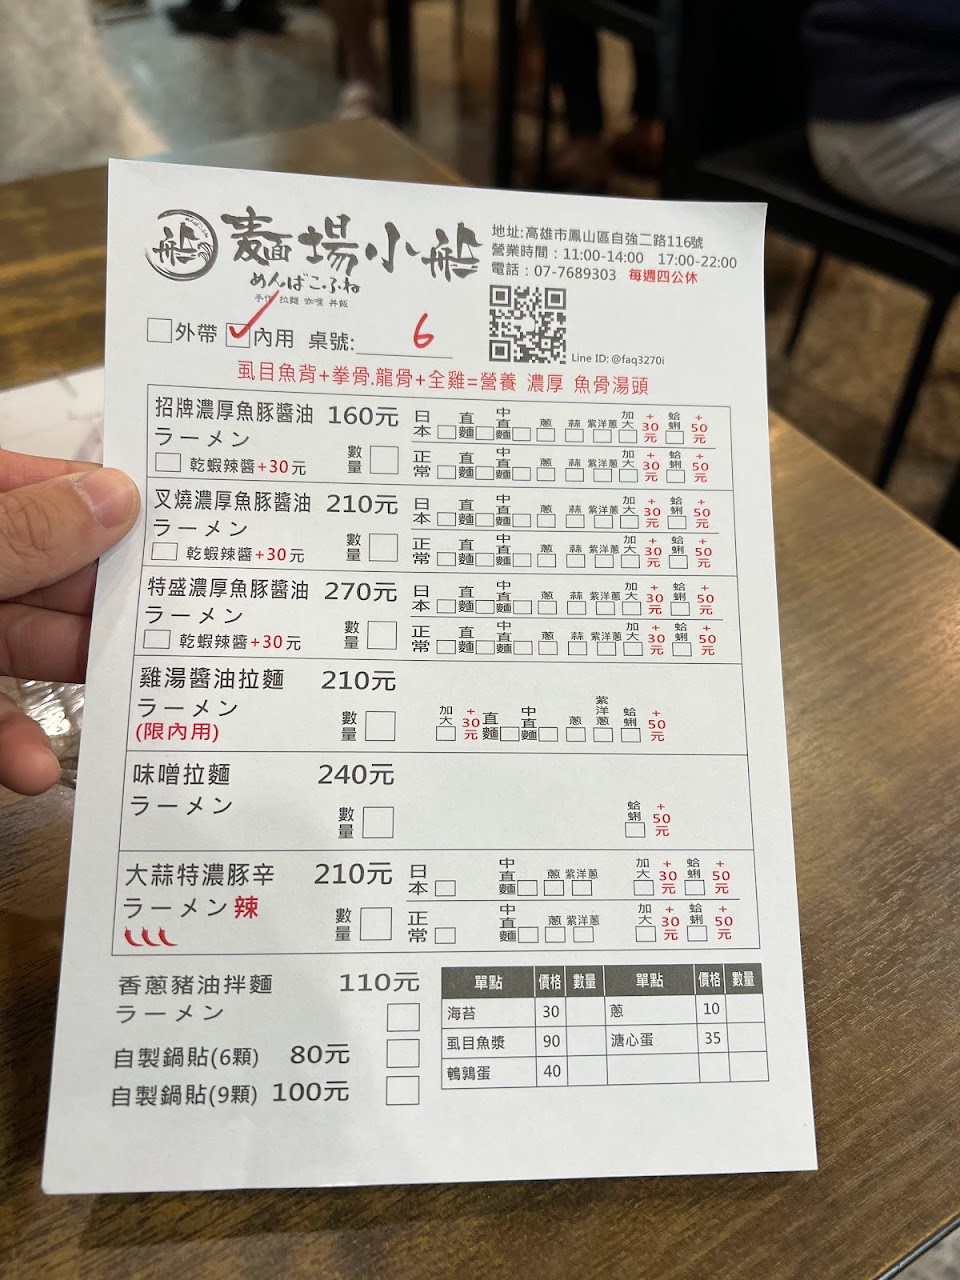 船
麵場小船
めんばこふね
手作 拉麵 咖哩 丼飯
地址:高雄市鳳山區自強二路116號
營業時間：11:00-14:00 17:00-22:00
電話：07-7689303 每週四公休
Line ID: @faq3270i
外帶 內用 桌號: 6
虱目魚背+拳骨.龍骨+全雞=營養 濃厚 魚骨湯頭
招牌濃厚魚豚醬油 160元
ラーメン
乾蝦辣醬+30元 數量
日本 直麵 中直麵 蔥 蒜 紫洋蔥 加大 +30元 蛤蜊 +50元
正常 直麵 中直麵 蔥 蒜 紫洋蔥 加大 +30元 蛤蜊 +50元
叉燒濃厚魚豚醬油 210元
ラーメン
乾蝦辣醬+30元 數量
日本 直麵 中直麵 蔥 蒜 紫洋蔥 加大 +30元 蛤蜊 +50元
正常 直麵 中直麵 蔥 蒜 紫洋蔥 加大 +30元 蛤蜊 +50元
特盛濃厚魚豚醬油 270元
ラーメン
乾蝦辣醬+30元 數量
日本 直麵 中直麵 蔥 蒜 紫洋蔥 加大 +30元 蛤蜊 +50元
正常 直麵 中直麵 蔥 蒜 紫洋蔥 加大 +30元 蛤蜊 +50元
雞湯醬油拉麵 210元
ラーメン
(限內用) 數量
加大 +30元 直麵 中直麵 蔥 紫洋蔥 蛤蜊 +50元
味噌拉麵 240元
ラーメン
數量 蛤蜊 +50元
大蒜特濃豚辛 210元
ラーメン 辣
數量
日本 中直麵 蔥 紫洋蔥 加大 +30元 蛤蜊 +50元
正常 中直麵 蔥 紫洋蔥 加大 +30元 蛤蜊 +50元
香蔥豬油拌麵 110元
ラーメン
自製鍋貼(6顆) 80元
自製鍋貼(9顆) 100元
單點 價格 數量 單點 價格 數量
海苔 30 蔥 10
虱目魚漿 90 溏心蛋 35
鵪鶉蛋 40